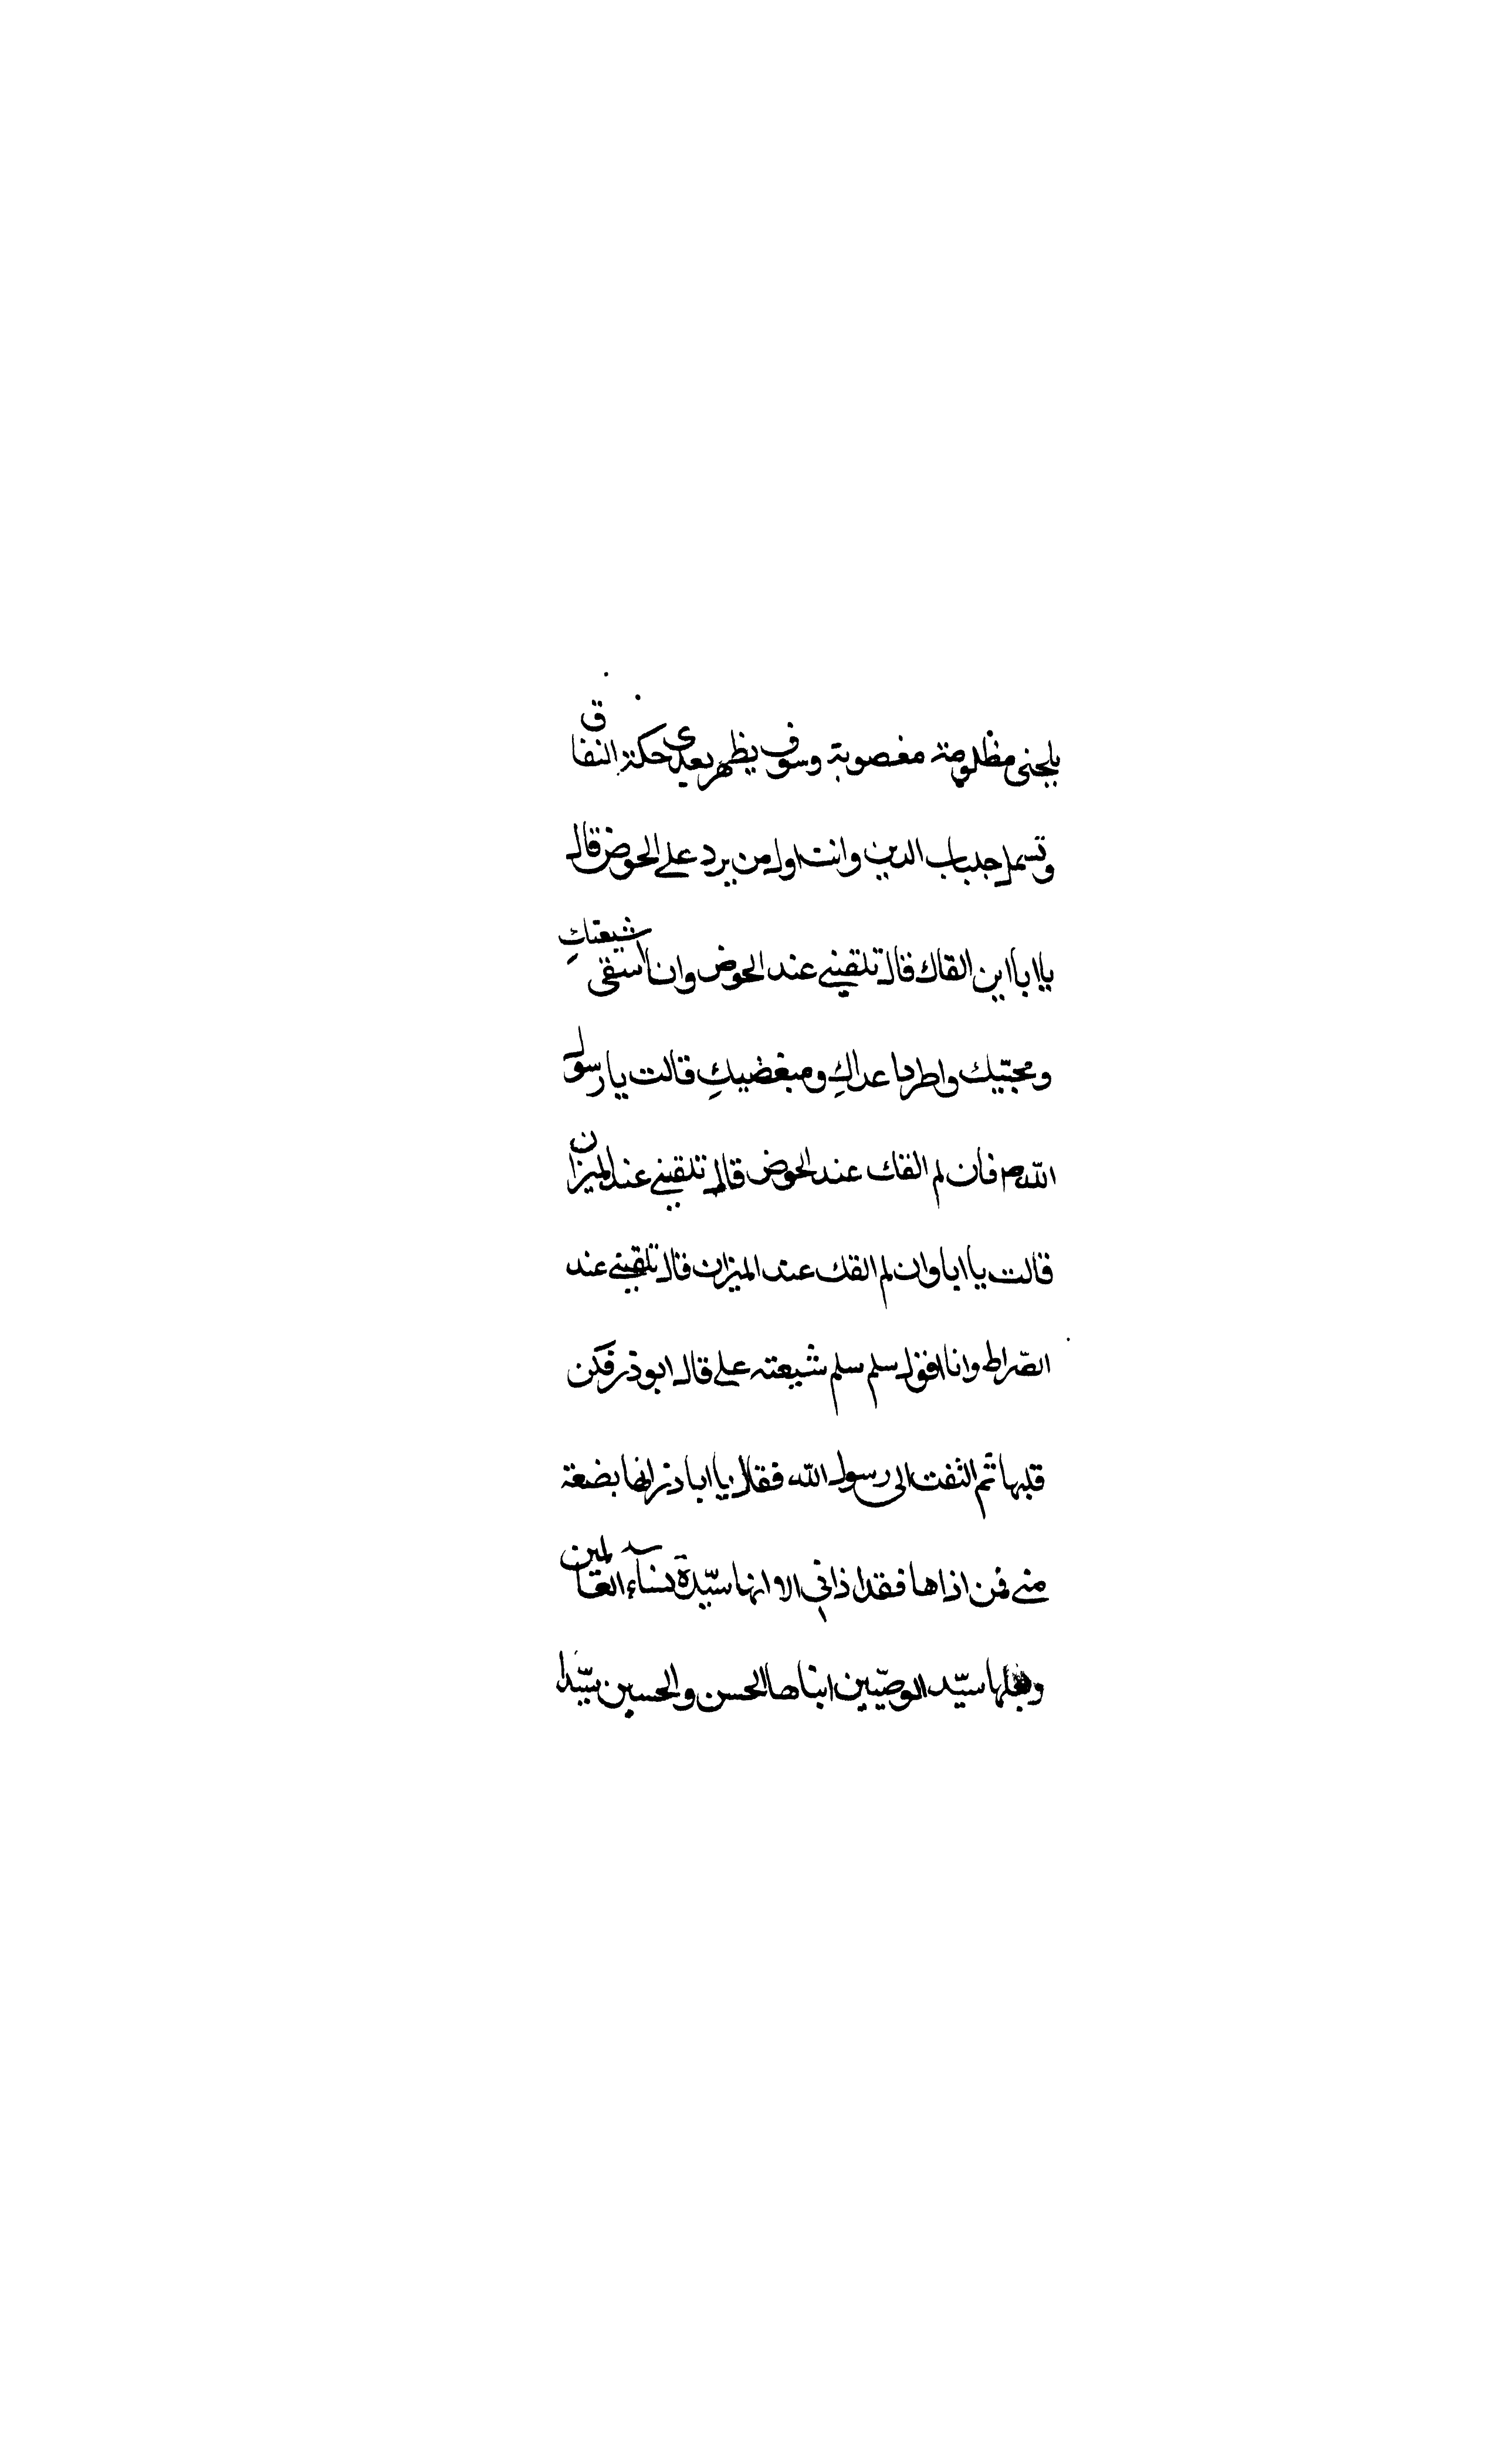 يلحقنى مظلومة مغصوبة وسوف يظهر بعدى حسكة النفاق
وتسمل جلباب الدين وانت اول من يرد على الحوض قال
يا ابا اين القاك قال تلقينى عند الحوض وانا اسقى شيعتكِ
ومحبّيك واطرد اعداكِ ومبغضيكِ قالت يا رسول
اللهص فان لم القك عند الحوض قال تلقينى عند الميزان
قالت يا ابا وان لم القك عند الميزان قال تلقينى عند
الصّراط وانا اقول سلم سلم شيعته على قال ابوذر فسكن
قلبها ثم التفت الى رسول الله فقال يا ابا ذر انها بضعة
منى فمن اذاها فقد اذانى الا انها سيّدة نسآء العالمين
وبعلها سيّد الوصيّين ابناها الحسن والحسين سيّدا